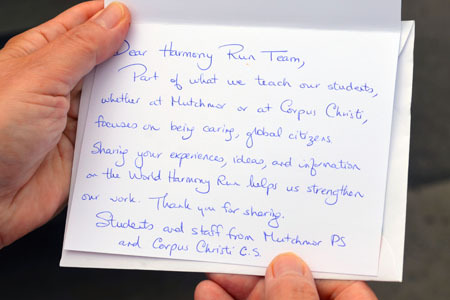 Dear Harmony Run Team,
Part of what we teach our students,
whether at Mutchmor or at Corpus Christi,
focuses on being caring, global citizens.
Sharing your experiences, ideas, and information
on the World Harmony Run helps us strengthen
our work. Thank you for sharing.
Students and staff from Mutchmor PS
and Corpus Christi C.S.